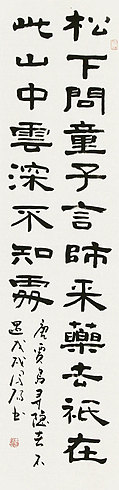 松下問童子言師采藥去祇在
此山中雲深不知處
唐賈島尋隱者不
遇戊戌書